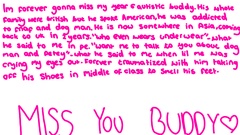 Im forever gonna miss my year 8 autistic buddy. His whole
family were british but he spoke American, he was addicted
to mop and dog man. He is now somewhere in Asia, coming
back to uk in 2 years. "who even wears underwear"- what
he said to me in pe. "want me to talk to you about dog
man and petey"- what he said to me when lil me was
crying my eyes out. Forever traumatized with him taking
off his shoes in middle of class to smell his feet.
MISS YOU BUDDY♡